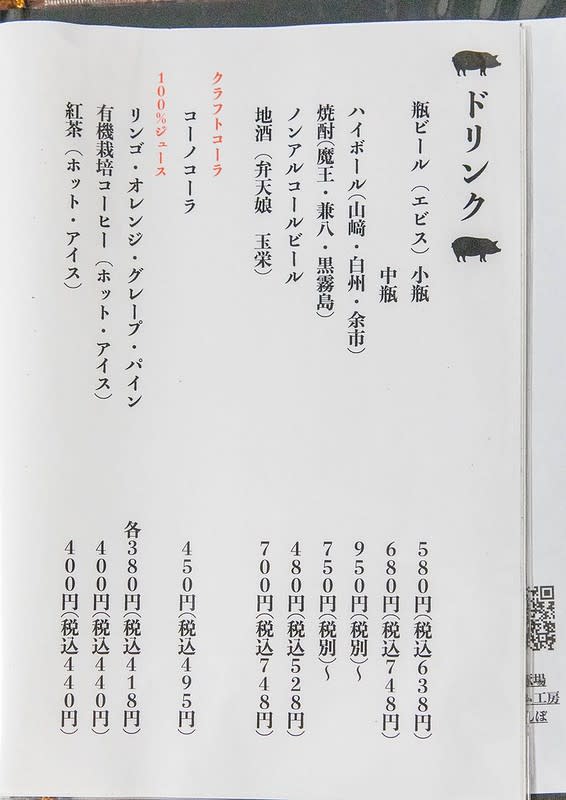 ドリンク
瓶ビール（エビス）小瓶 580円(税込638円)
中瓶 680円(税込748円)
ハイボール(山﨑・白州・余市) 950円(税別)〜
焼酎(魔王・兼八・黒霧島) 750円(税別)〜
ノンアルコールビール 480円(税込528円)
地酒（弁天娘 玉栄） 700円(税込748円)
クラフトコーラ
コーノコーラ 450円(税込495円)
100%ジュース
リンゴ・オレンジ・グレープ・パイン 各380円(税込418円)
有機栽培コーヒー（ホット・アイス） 400円(税込440円)
紅茶（ホット・アイス） 400円(税込440円)
工房